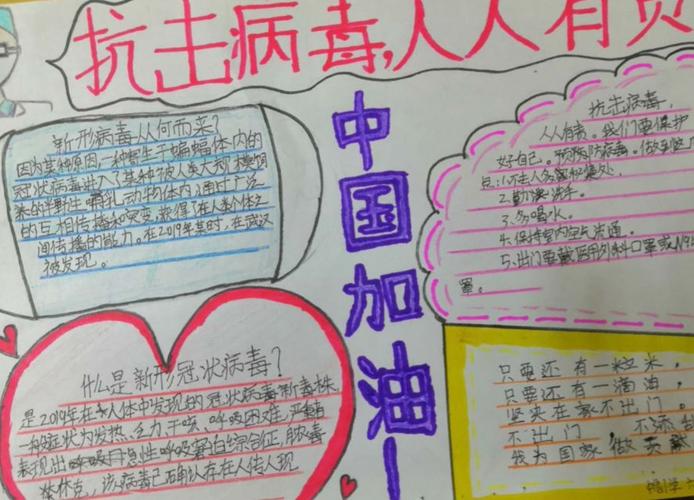 抗击病毒,人人有责
新形病毒从何而来?
因为某种原因,一种寄生于蝙蝠体内的
冠状病毒进入了某种被人类大规模
来的野生哺乳动物体内,通过广泛
的互相传播和突变,获得了在人类个体之
间传播的能力。在2019年某时,在武汉
被发现。
中国加油
什么是新形冠状病毒?
是2019年在人体中发现的冠状病毒新毒株,
一般症状为发热、乏力、干咳、呼吸困难,严重者
表现出急性呼吸窘迫综合征,脓毒
休克,该病毒已确认存在人传人现
抗击病毒,
人人有责。我们要保护
好自己。预防病毒。做到
点:1.不去人多密集处
2.勤洗手。
3.多喝水。
4.保持室内空气流通。
5.出门要戴医用外科口罩或N95
罩。
只要还有一粒米,
只要还有一滴油,
坚决在家不出门。
不出门 不添
我为国家做贡献